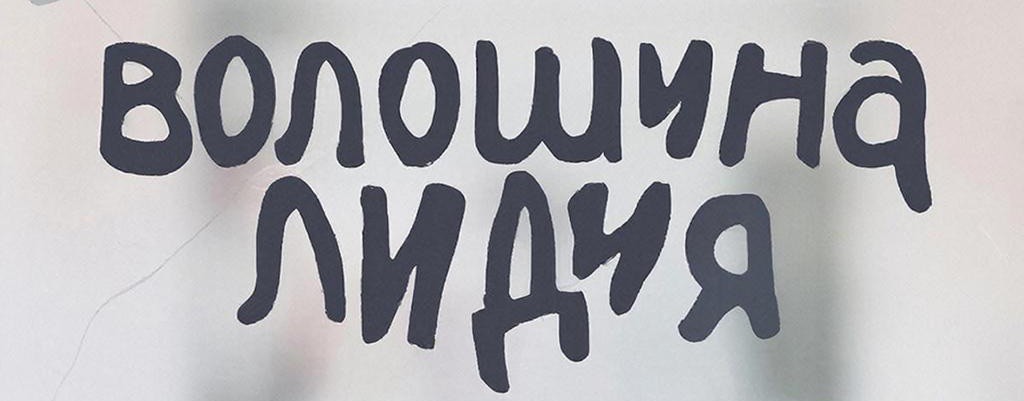 волошина
лидия